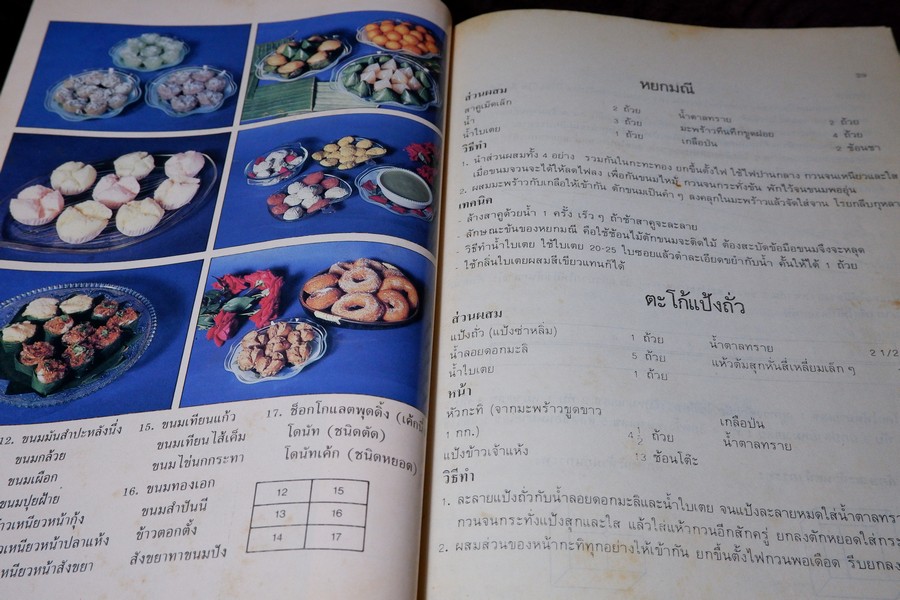 12. ขนมมันสำปะหลังนึ่ง
ขนมกล้วย
ขนมเผือก
ขนมปุยฝ้าย
เหนียวหน้ากุ้ง
เหนียวหน้าปลาแห้ง
เหนียวหน้าสังขยา
15. ขนมเทียนแก้ว
ขนมเทียนไส้เค็ม
ขนมไข่นกกระทา
16. ขนมทองเอก
ขนมสำปันนี
ข้าวตอกตั้ง
สังขยาทาขนมปัง
17. ช็อกโกแลตพุดดิ้ง
โดนัท (ชนิดตัด)
โดนัทเค้ก (ชนิดหยอด)
12 15
13 16
14 17
หยกมณี
ส่วนผสม
สาคูเม็ดเล็ก 2 ถ้วย น้ำตาลทราย 2 ถ้วย
น้ำ 3 ถ้วย มะพร้าวทึนทึกขูดฝอย 4 ถ้วย
น้ำใบเตย 1 ถ้วย เกลือป่น 2 ช้อนชา
วิธีทำ
1. นำส่วนผสมทั้ง 4 อย่าง รวมกันในกะทะทอง ยกขึ้นตั้งไฟ ใช้ไฟปานกลาง กวนจนเหนียวและใส
เมื่อขนมจวนจะได้ให้ลดไฟลง เพื่อกันขนมไหม้ กวนจนกระทั่งข้น พักไว้จนขนมพออุ่น
2. ผสมมะพร้าวกับเกลือให้เข้ากัน ตักขนมเป็นคำ ๆ ลงคลุกในมะพร้าวแล้วจัดใส่จาน โรยกลีบกุหลาบ
เทคนิค
- ล้างสาคูด้วยน้ำ 1 ครั้ง เร็ว ๆ ถ้าช้าสาคูจะละลาย
- ลักษณะข้นของหยกมณี คือใช้ช้อนไม้ตักขนมจะติดไม้ ต้องสะบัดข้อมือขนมจึงจะหลุด
- วิธีทำน้ำใบเตย ใช้ใบเตย 20-25 ใบซอยแล้วตำละเอียดขยำกับน้ำ คั้นให้ได้ 1 ถ้วย
- ใช้กลิ่นใบเตยผสมสีเขียวแทนก็ได้
ตะโก้แป้งถั่ว
ส่วนผสม
แป้งถั่ว (แป้งซ่าหลิ่ม) 1 ถ้วย น้ำตาลทราย 2 1/2
น้ำลอยดอกมะลิ 5 ถ้วย แห้วต้มสุกหั่นสี่เหลี่ยมเล็ก ๆ
น้ำใบเตย 1 ถ้วย
หน้า
หัวกะทิ (จากมะพร้าวขูดขาว เกลือป่น
1 กก.) 4 1/2 ถ้วย น้ำตาลทราย
แป้งข้าวเจ้าแห้ง 13 ช้อนโต๊ะ
วิธีทำ
1. ละลายแป้งถั่วกับน้ำลอยดอกมะลิและน้ำใบเตย จนแป้งละลายหมดใส่น้ำตาลทราย
กวนจนกระทั่งแป้งสุกและใส แล้วใส่แห้วกวนอีกสักครู่ ยกลงตักหยอดใส่
2. ผสมส่วนของหน้ากะทิทุกอย่างให้เข้ากัน ยกขึ้นตั้งไฟกวนพอเดือด รีบยกลง